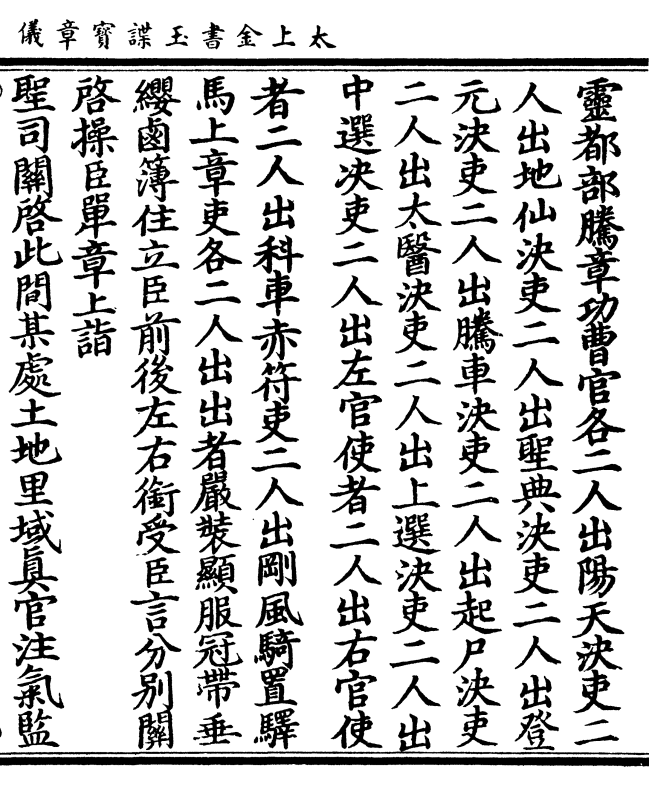 太上金書玉諜寳章儀
靈都部騰章功曹官各二人出陽天決吏二
人出地仙決吏二人出聖典決吏二人出登
元決吏二人出騰車決吏二人出起尸決吏
二人出太醫決吏二人出上選決吏二人出
中選决吏二人出左官使者二人出右官使
者二人出科車赤符吏二人出剛風騎置驛
馬上章吏各二人出出者嚴裝顯服冠帶垂
纓鹵簿住立臣前後左右銜受臣言分別關
啓操臣單章上詣
聖司關啓此間某處土地里域真官注氣監